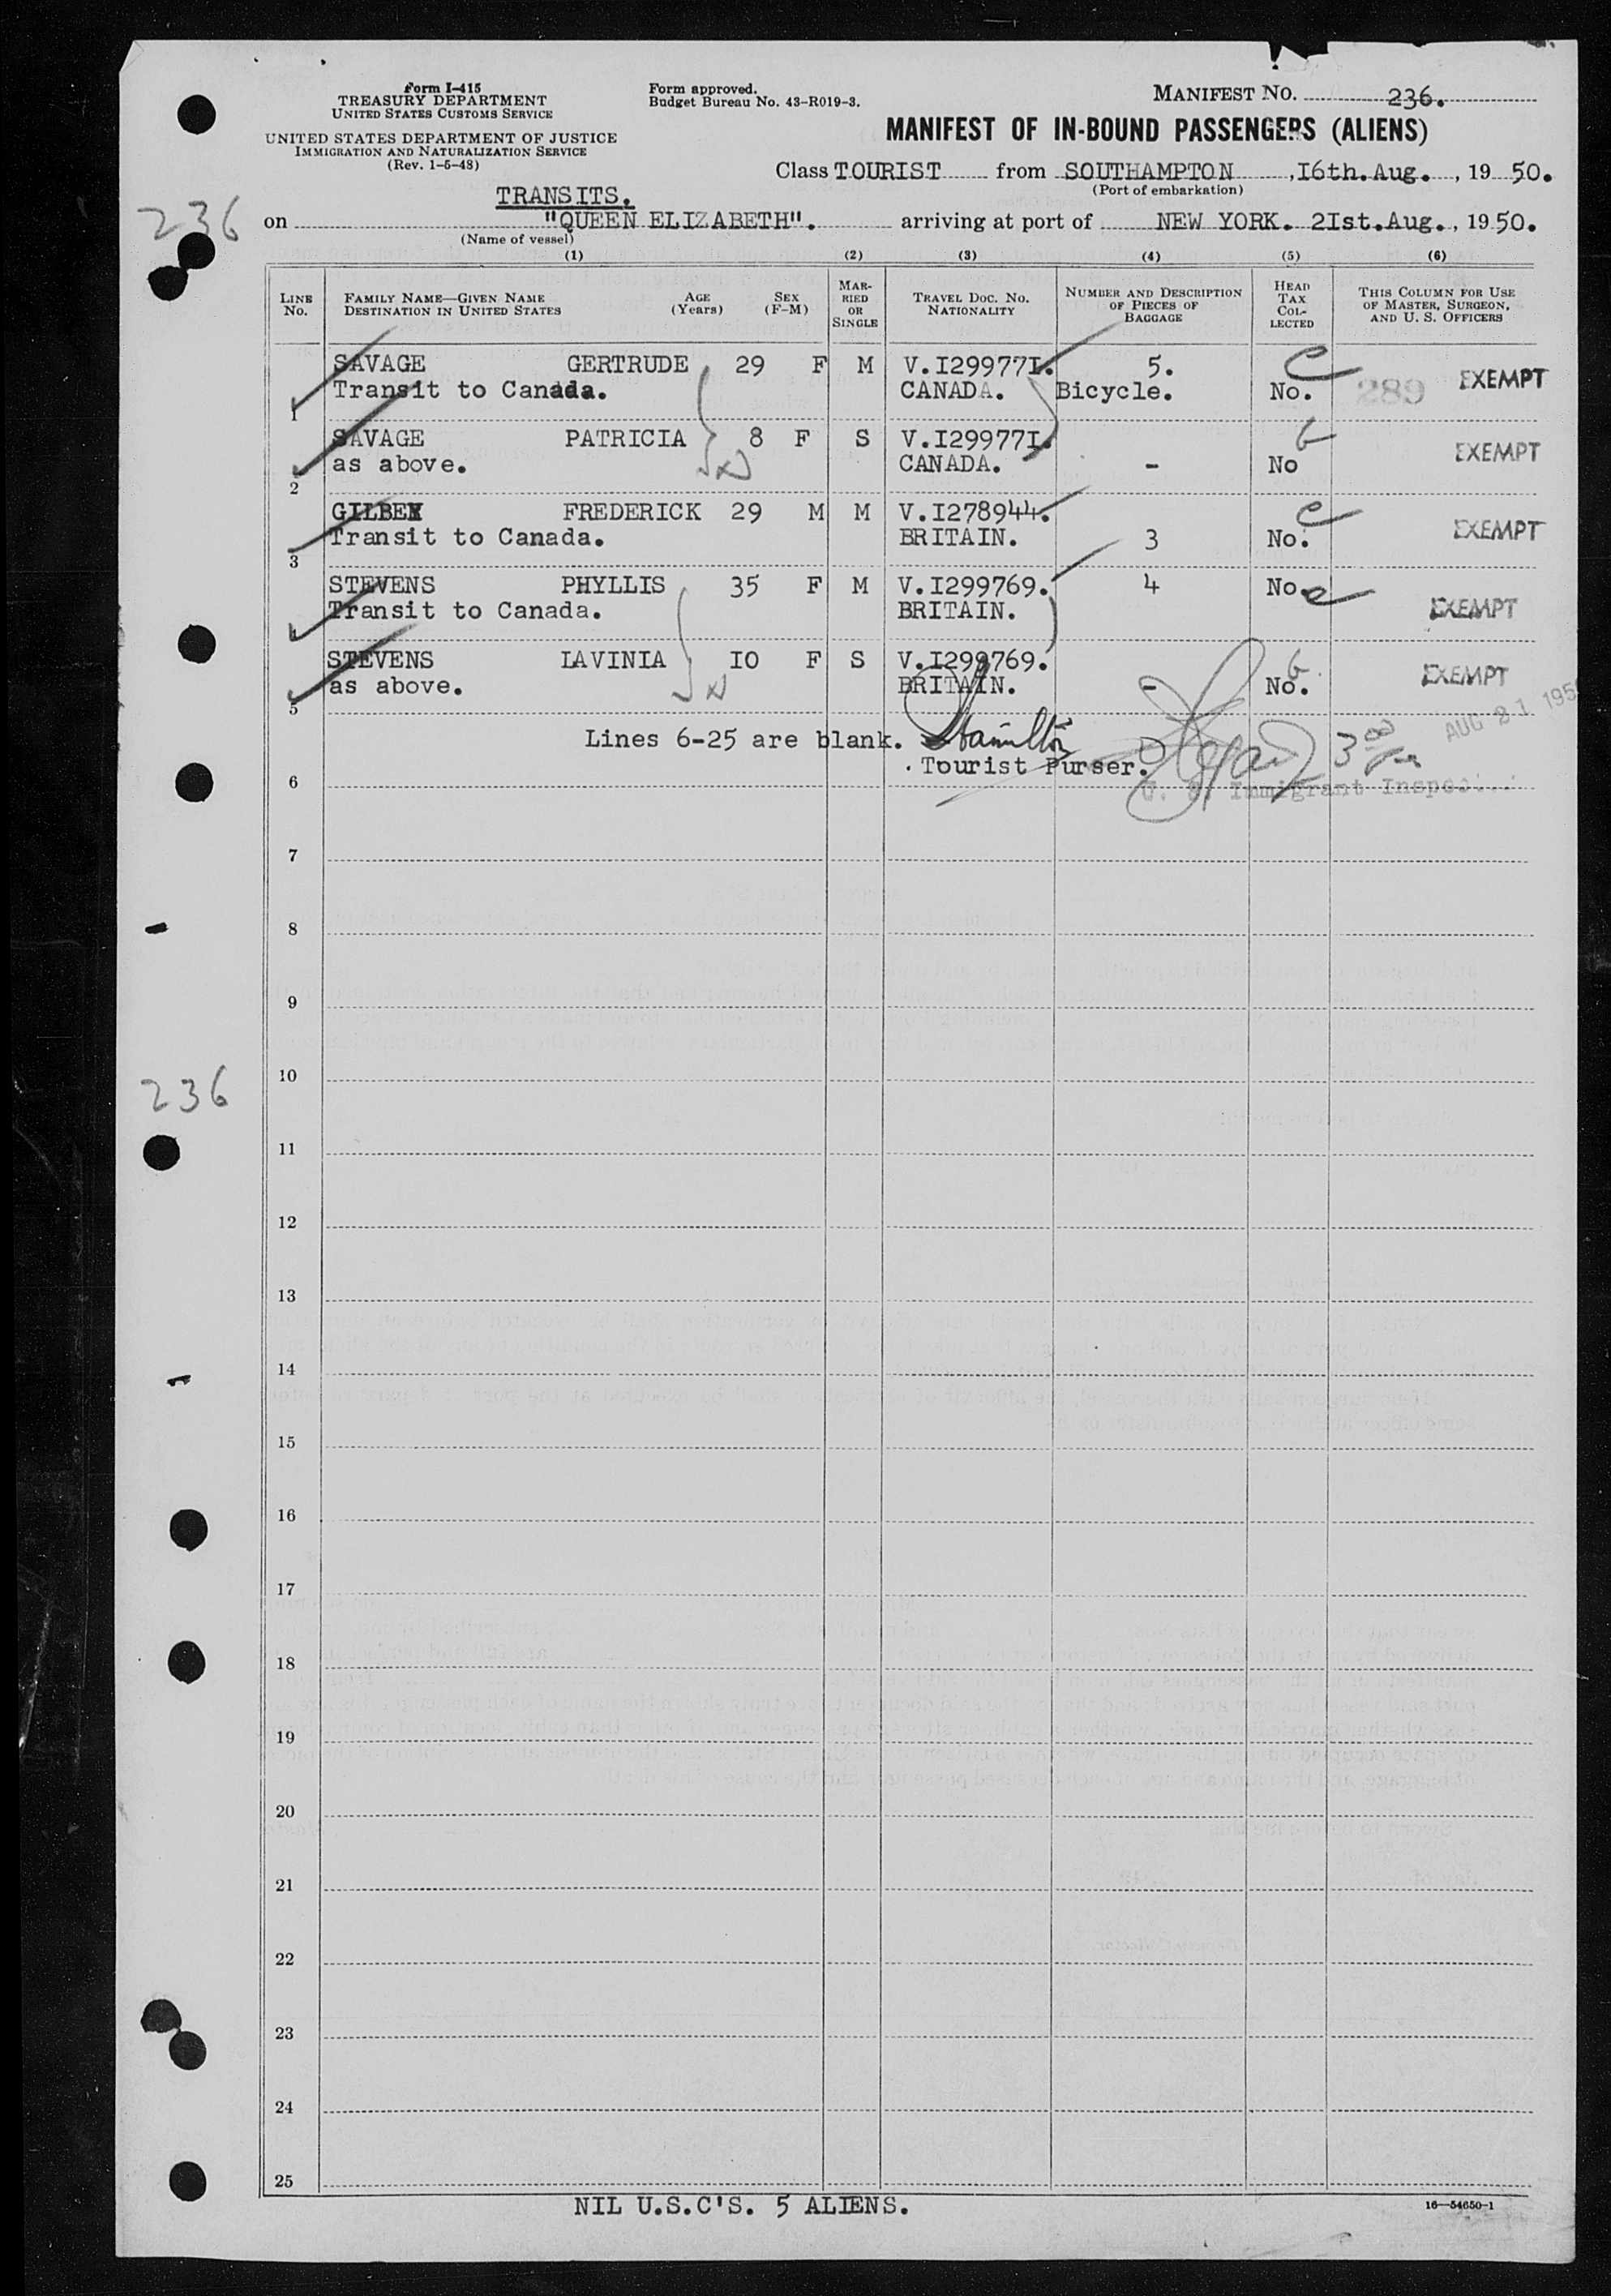 Form I-415
TREASURY DEPARTMENT
UNITED STATES CUSTOMS SERVICE
UNITED STATES DEPARTMENT OF JUSTICE
IMMIGRATION AND NATURALIZATION SERVICE
(Rev. 1-5-48)
Form approved.
Budget Bureau No. 43-R019-3.
MANIFEST NO. 236.
MANIFEST OF IN-BOUND PASSENGERS (ALIENS)
Class TOURIST from SOUTHAMPTON, I6th.Aug., 1950.
(Port of embarkation)
TRANSITS.
236
on "QUEEN ELIZABETH". arriving at port of NEW YORK. 2Ist.Aug., 1950.
(Name of vessel)
(1) (2) (3) (4) (5) (6)
LINE No. FAMILY NAME—GIVEN NAME DESTINATION IN UNITED STATES AGE (Years) SEX (F-M) MARRIED OR SINGLE TRAVEL DOC. NO. NATIONALITY NUMBER AND DESCRIPTION OF PIECES OF BAGGAGE HEAD TAX COLLECTED THIS COLUMN FOR USE OF MASTER, SURGEON, AND U. S. OFFICERS
SAVAGE GERTRUDE 29 F M V.I29977I. 5. EXEMPT
1 Transit to Canada. CANADA. Bicycle. No. 289
SAVAGE PATRICIA 8 F S V.I29977I. EXEMPT
2 as above. CANADA. - No
FREDERICK 29 M M V.I278944. EXEMPT
3 Transit to Canada. BRITAIN. 3 No.
STEVENS PHYLLIS 35 F M V.I299769. 4 No.
4 Transit to Canada. BRITAIN. EXEMPT
STEVENS LAVINIA IO F S V.I299769. EXEMPT
5 as above. BRITAIN. - No.
AUG 21 195
Lines 6-25 are blank. Hamilton
Tourist Purser.
6 U. S. Immigrant
7
8
9
10
236
11
12
13
14
15
16
17
18
19
20
21
22
23
24
25
NIL U.S.C'S. 5 ALIENS.
16—54650-1